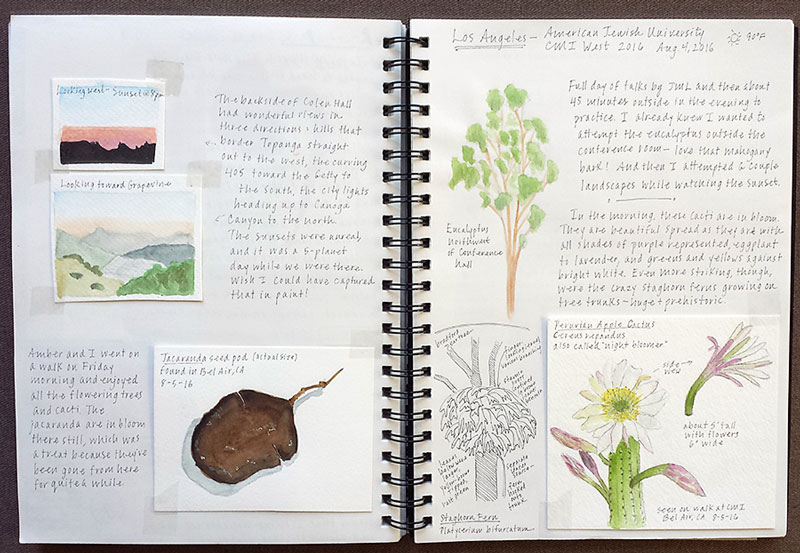 Looking west - Sunset @ 8pm
The backside of Colen Hall
had wonderful views in
three directions: hills that
border Topanga straight
out to the west, the curving
405 toward the Getty to
the south, the city lights
heading up to Canoga
Canyon to the north.
The sunsets were unreal,
and it was a 5-planet
day while we were there.
Wish I could have captured
that in paint!
Looking toward Grapevine
Amber and I went on
a walk on Friday
morning and enjoyed
all the flowering trees
and cacti. The
jacaranda are in bloom
there still, which was
a treat because they've
been gone from here
for quite a while.
Jacaranda seed pod (actual size)
found in Bel Air, CA
8-5-16
Los Angeles - American Jewish University
CMI West 2016 Aug. 4, 2016
90°F
Full day of talks by JML and then about
45 minutes outside in the evening to
practice. I already knew I wanted to
attempt the eucalyptus outside the
conference room - love that mahogany
bark! And then I attempted a couple
landscapes while watching the sunset.
In the morning, these cacti are in bloom.
They are beautiful spread as they are with
all shades of purple represented, eggplant
to lavender, and greens and yellows against
bright white. Even more striking, though,
were the crazy staghorn ferns growing on
tree trunks - huge + prehistoric.
Eucalyptus
northwest
of Conference
Hall
Staghorn Fern
Platycerium bifurcatum
Peruvian Apple Cactus
Cereus repandus
also called "night bloomer"
side
view
about 5' tall
with flowers
6" wide
seen on walk at CMI
Bel Air, CA 8-5-16